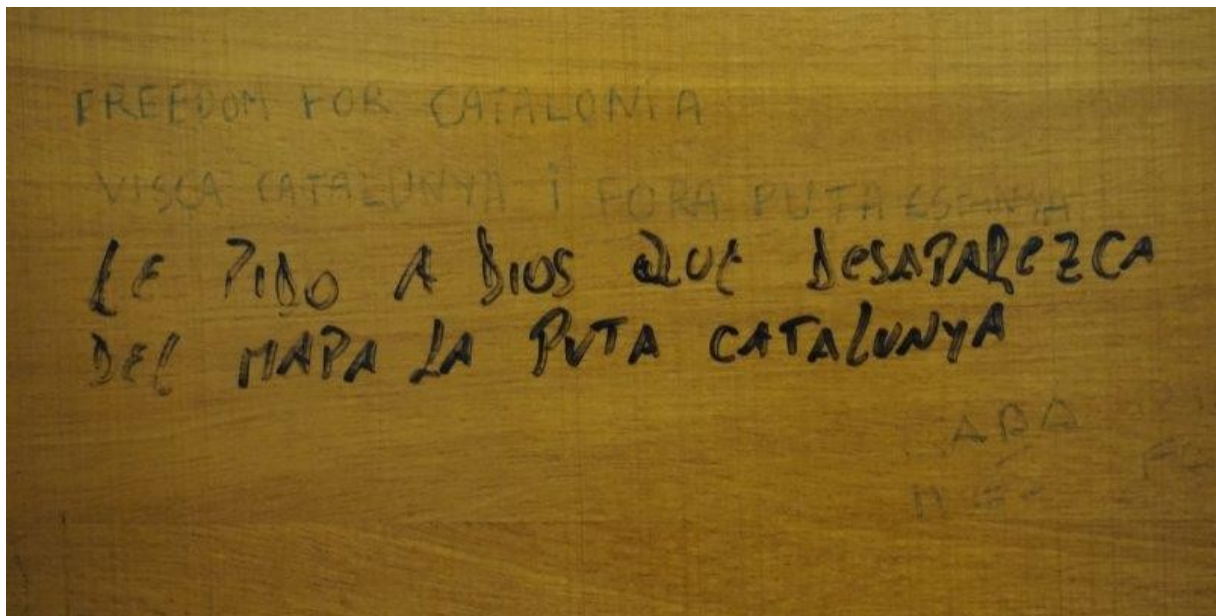 FREEDOM FOR CATALONIA
VISCA CATALUNYA I FORA PUTA ESPANYA
LE PIDO A DIOS QUE DESAPAREZCA
DEL MAPA LA PUTA CATALUNYA